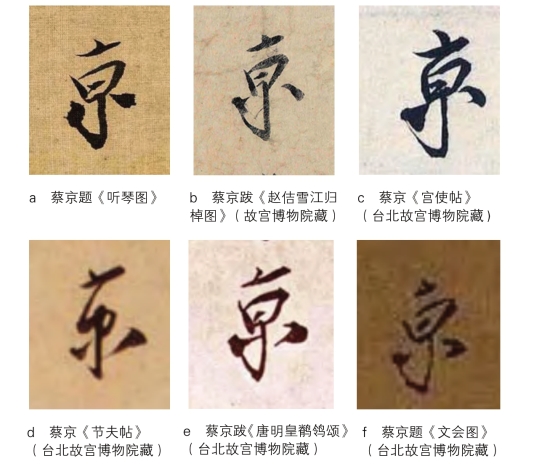 京
京
京
a 蔡京题《听琴图》
b 蔡京跋《赵佶雪江归
棹图》（故宫博物院藏）
c 蔡京《宫使帖》
（台北故宫博物院藏）
京
京
京
d 蔡京《节夫帖》
（台北故宫博物院藏）
e 蔡京跋《唐明皇鹡鸰颂》
（台北故宫博物院藏）
f 蔡京题《文会图》
（台北故宫博物院藏）